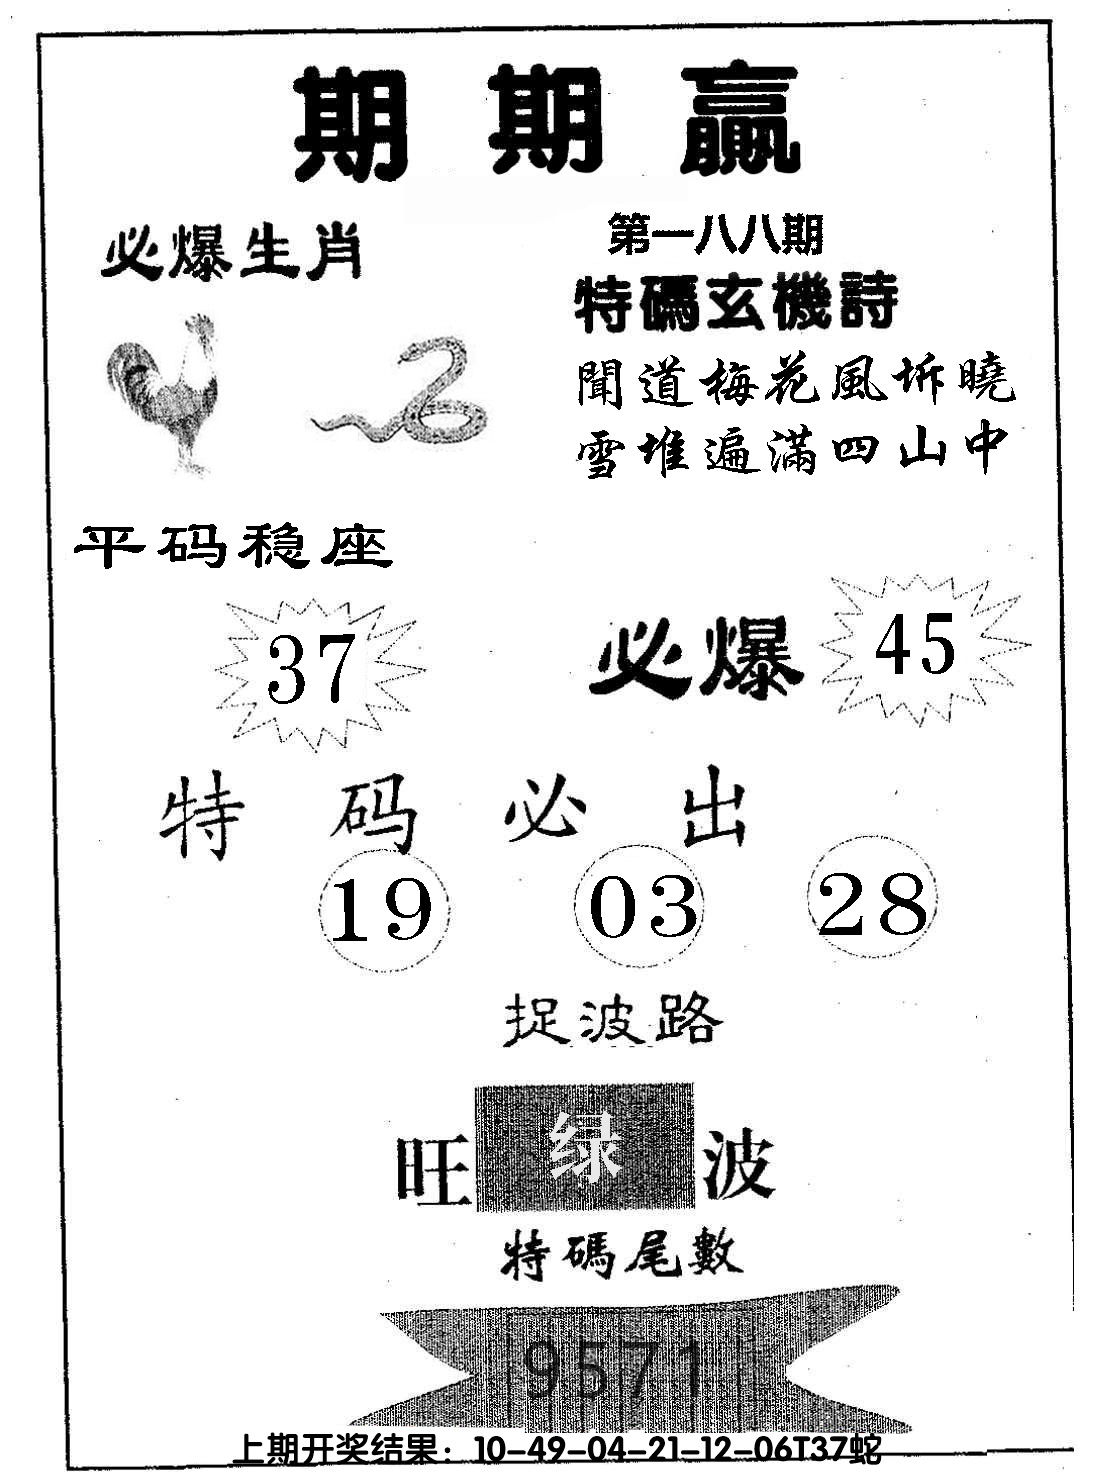 期期贏
必爆生肖
第一八八期
特碼玄機詩
聞道梅花風坼曉
雪堆遍滿四山中
平码稳座
37
必爆 45
特码必出
19 03 28
捉波路
旺 绿 波
特碼尾數
9571
上期开奖结果：10-49-04-21-12-06T37蛇